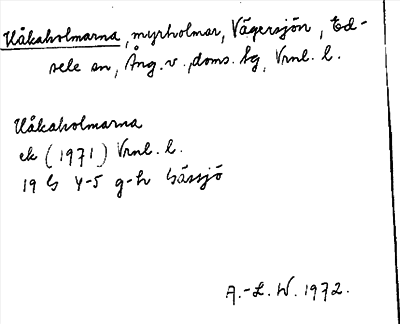 Håkaholmarna, myrholmar, Vägersjön, Ed-
sele sn, Ång. v., doms. hg, Vrnl. l.
Håkaholmarna
ek (1971) Vrnl. l.
19 G 4-5 g-h Gåssjö
A.-L. W. 1972.